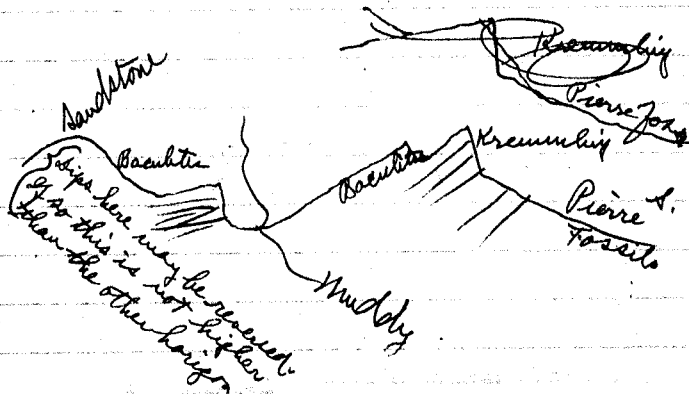 Kremmling
Pierre Foxs
Sandstone
Baculites
Baculites
Kremmling
Pierre S.
Fossils
Muddy
Dips here may be reversed.
If so this is not higher
than the other horizon